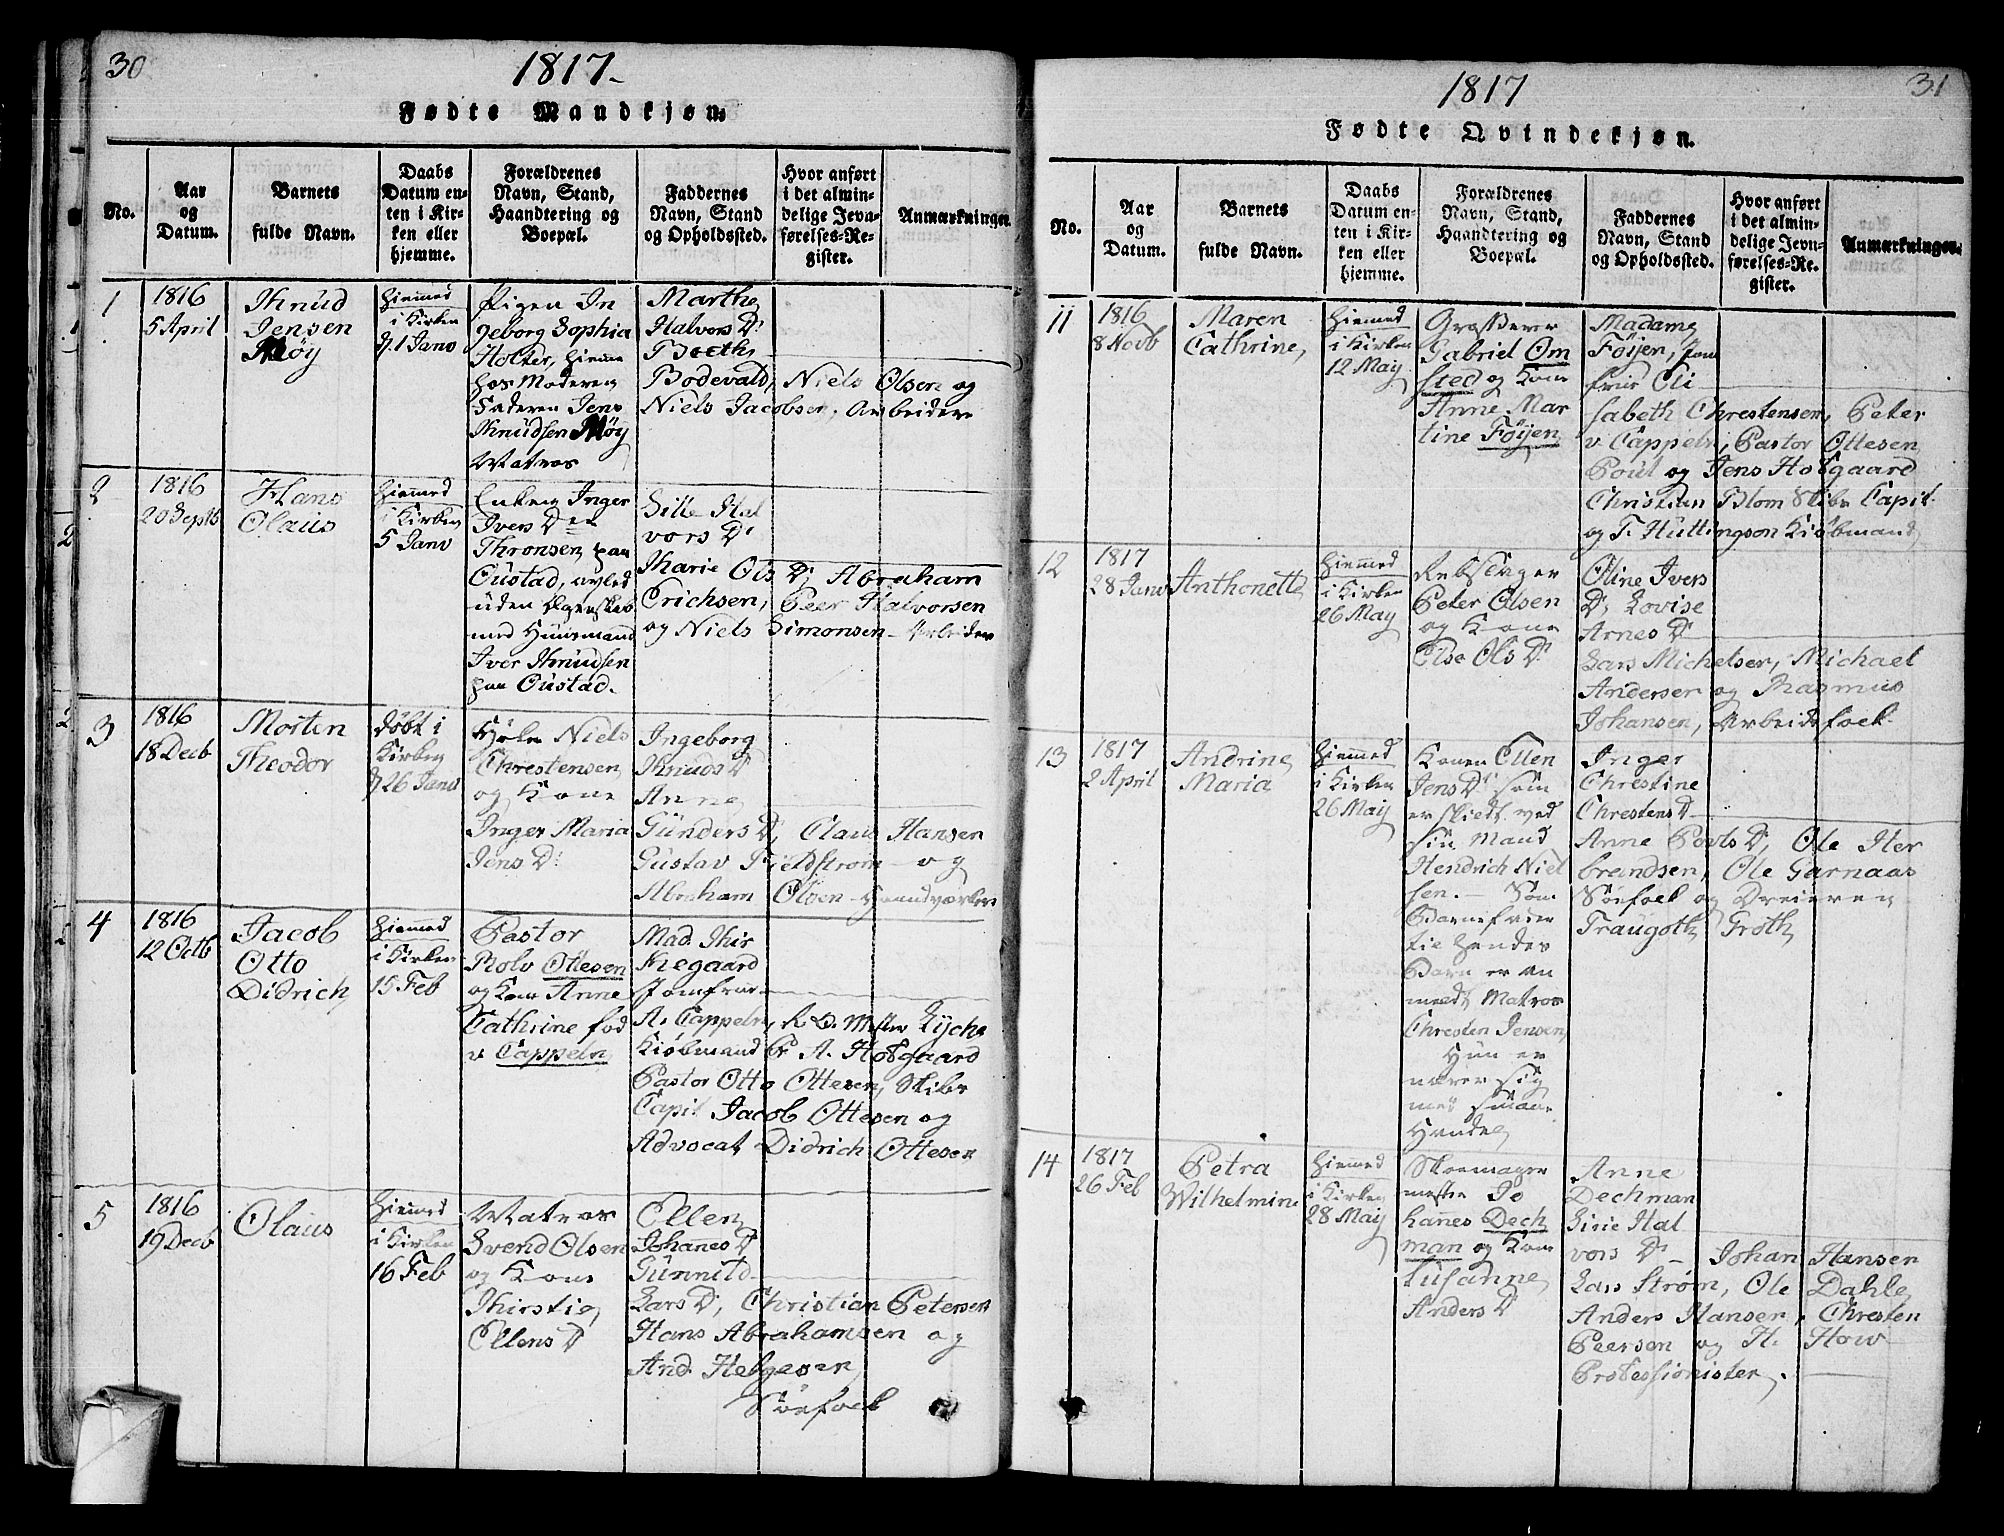 30
1817.
Fødte Mandkjøn.
No.
Aar og Datum.
Barnets fulde Navn.
Daabs Datum enten i Kirken eller hjemme.
Forældrenes Navn, Stand, Haandtering og Boepæl.
Faddernes Navn, Stand og Opholdssted.
Hvor anført i det almindelige Jevnførelses-Register.
Anmærkninger.
1
1816
5 April
Knud
Jensen
Møy
Hiemmed
i Kirken
d. 1 Janv
Pigen In
geborg Sophia
Holter, hiemme
hos Moderen
Faderen Jens
Knudsen Møy
Matros
Marthe
Halvors Dr
Boeth
Bodevald, Niels Olsen og
Niels Jacobsen, Arbeidere
2
1816
20 Septb
Hans
Olaus
Hiemmed
i Kirken
5 Janv
Enken Inger
Ivers Der
Thronsen paa
Oustad, avled
uden Ægteskab
med Huusmand
Iver Knudsen
paa Oustad.
Sille Hal
vors Dr
Marie Ols Dr, Abraham
Erichsen, Peer Halvorsen
og Niels Simonsen Arbeider
3
1816
18 Decb
Morten
Theodor
døbt i
Kirken
d 26 Janv
Niels
Chrestensen
og Kone
Inger Maria
Jens Dr
Ingeborg
Knuds Dr
Anne
Gunders Dr, Claus Hansen
Gustav Fieldstrøm og
Abraham Olsen Haandværker
4
1816
12 Octb
Jacob
Otto
Didrich
Hiemmed
i Kirken
15 Feb
Pastor
Rolv Ottesen
og Kone Anne
Cathrine fød
v Cappeln
Mad. Kir
kegaard
Jomfrue
A. Cappeln, Lyche
Kiøbmand P. A. Hofgaard
Pastor Otto Ottesen, Skibs
Capit Jacob Ottesen og
Advocat Didrich Ottesen
5
1816
19 Decb
Olaus
Hiemmed
i Kirken
16 Feb
Matros
Svend Olsen
og Kone
Kirstig
Ellens Dr
Ellen
Johannes Dr
Gunnild
Lars Dr, Christian Petersen
Hans Abrahamsen og
And. Helgesen
Søefolk
31
1817
Fødte Qvindekjøn.
No.
Aar og Datum.
Barnets fulde Navn.
Daabs Datum enten i Kirken eller hjemme.
Forældrenes Navn, Stand, Haandtering og Boepæl.
Faddernes Navn, Stand og Opholdssted.
Hvor anført i det almindelige Jevnførelses-Register.
Anmærkninger.
11
1816
8 Novb
Maren
Cathrine,
Hiemmed
i Kirken
12 May
Grosserer
Gabriel Om
sted og Kone
Anne Mar
tine Føijen
Madame
Føijen, Jom
frue Eli
sabeth Chrestensen, Peter
v Cappeln, Pastor Ottesen
Poul og Jens Hofgaard
Christian Blom Skibs Capit
og T. Huttingson Kiøbmand
12
1817
28 Janv
Anthonette
Hiemmed
i Kirken
26 May
Rebslager
Peter Olsen
og Kone
Else Ols Dr
Oline Ivers
Dr, Lovise
Arnes Dr
Lars Michelsen, Michael
Andersen og Rasmus
Johansen, Arbeidsfolk
13
1817
2 April
Andrine
Maria
Hiemmed
i Kirken
26 May
Konen Ellen
Jens Dr som
er skildt ved
sin Mand
Hendrich Niel
sen. Som
Barnefader
til hendes
Barn er an
meldt Matros
Chresten Jensen
Hun er
nærer sig
med smaae
Handel
Inger
Chrestine
Chrestens D
Anne Povls Dr, Ole Her
brandsen, Ole Garnaas
Søefolk og Dreieren
Traugoth Groth
14
1817
26 Feb
Petra
Wilhelmine
Hiemmed
i Kirken
28 May
Skoemager
mester Jo
hannes Dech
man og Kone
Susanne
Anders Dr
Anne
Dechman
Sirie Hal
vors Dr Johan Hansen
Lars Strøm, Ole Dahle
Anders Hansen, Chresten
Peersen og H. How
Professionister.